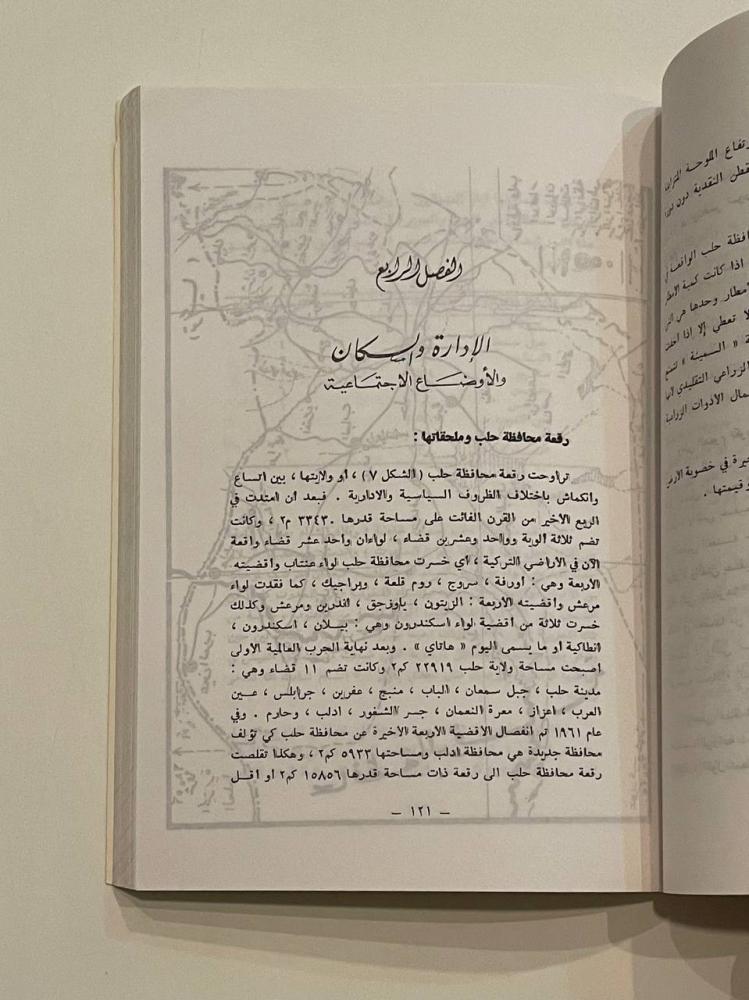 الفصل الرابع
الإدارة والسكان
والأوضاع الاجتماعية
رقعة محافظة حلب وملحقاتها :
تراوحت رقعة محافظة حلب ( الشكل ٧ ) ، أو ولايتها ، بين اتساع
وانكماش باختلاف الظروف السياسية والادارية . فبعد أن امتدت في
الربع الأخير من القرن الفائت على مساحة قدرها ٣٣٤٣٠ م٢ ، وكانت
تضم ثلاثة ألوية وواحد وعشرين قضاء ، لواءان واحد عشر قضاء واقعة
الآن في الأراضي التركية ، أي خسرت محافظة حلب لواء عنتاب واقضيته
الأربعة وهي : أورفة ، سروج ، روم قلعة ، وبراجيك ، كما فقدت لواء
مرعش واقضيته الأربعة : الزيتون ، يازجق ، اندرين ومرعش وكذلك
خسرت ثلاثة من أقضية لواء اسكندرون وهي : بيلان ، اسكندرون ،
انطاكية أو ما يسمى اليوم « هاتاي » . وبعد نهاية الحرب العالمية الأولى
أصبحت مساحة ولاية حلب ٢٢٩١٩ كم٢ وكانت تضم ١١ قضاء وهي :
مدينة حلب ، جبل سمعان ، الباب ، منبج ، عفرين ، جرابلس ، عين
العرب ، اعزاز ، معرة النعمان ، جسر الشغور ، ادلب ، وحارم . وفي
عام ١٩٦١ تم انفصال الاقضية الأربعة الأخيرة عن محافظة حلب كي تؤلف
محافظة جديدة هي محافظة ادلب ومساحتها ٥٩٣٣ كم٢ ، وهكذا تقلصت
رقعة محافظة حلب الى رقعة ذات مساحة قدرها ١٥٨٥٦ كم٢ أو أقل
— ١٢١ —
رتفاع اللوحة
قطن النقدية دون
افظة حلب الواقعة
اذا كانت كمية
أمطار وحدها هي
لا تعطي إلا إذا
ة « السمينة »
الزراعي التقليدي
مال الأدوات الزراعية
في خصوبة
وقيمتها .